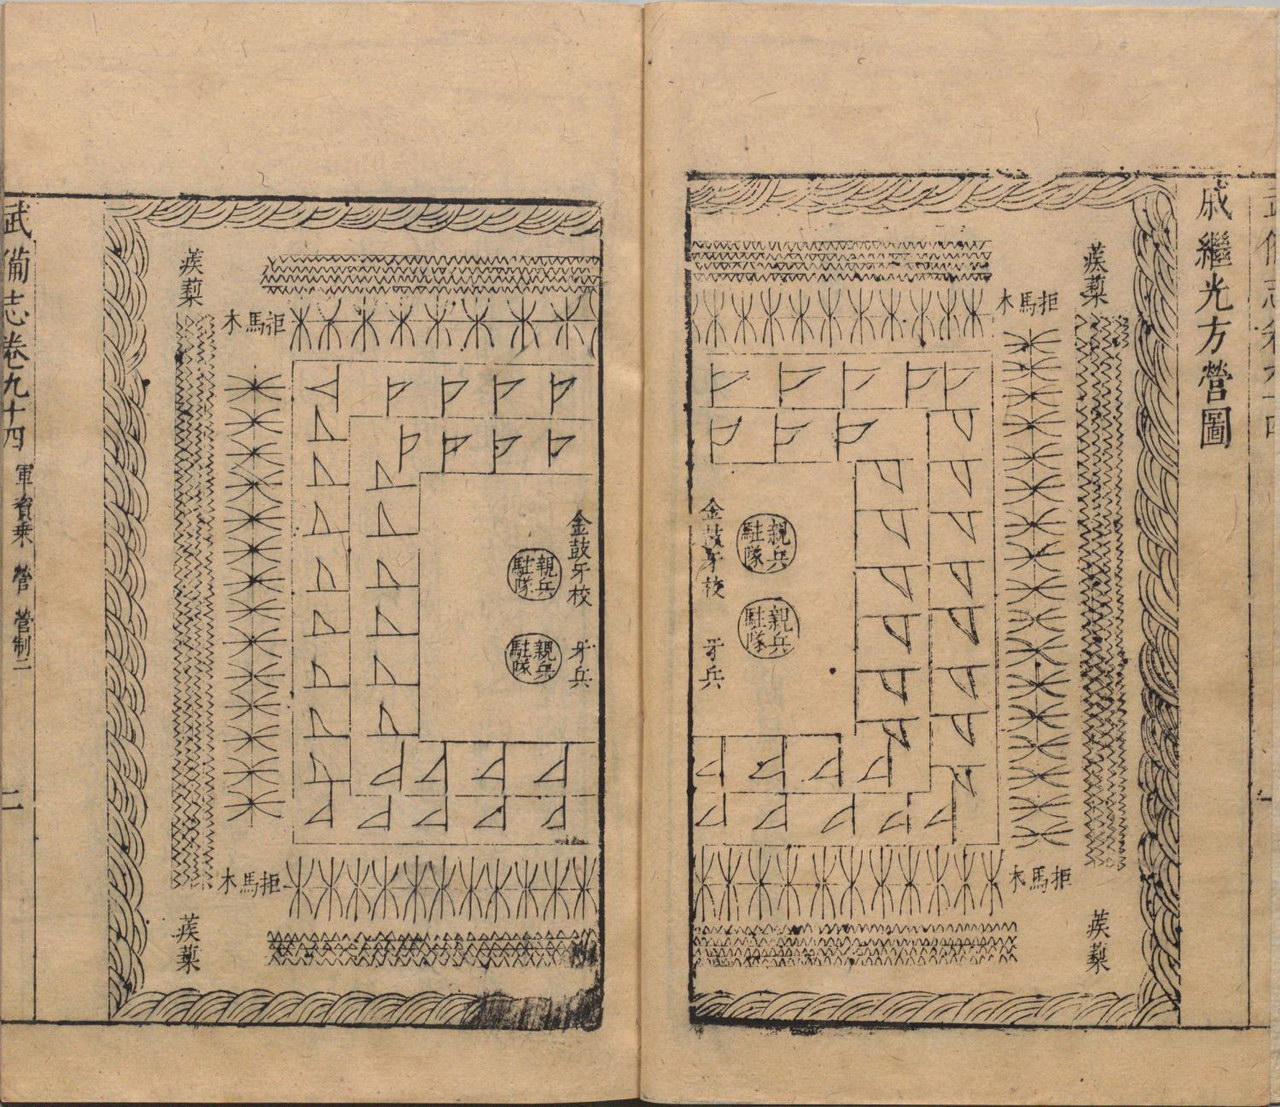 戚繼光方營圖
蒺蔾
拒馬木
拒馬木
蒺蔾
親兵駐隊
親兵駐隊
金鼓牙校 牙兵
金鼓牙校 牙兵
親兵駐隊
親兵駐隊
拒馬木
拒馬木
蒺蔾
蒺蔾
武備志卷九十四 軍資乘 營 營制二 二